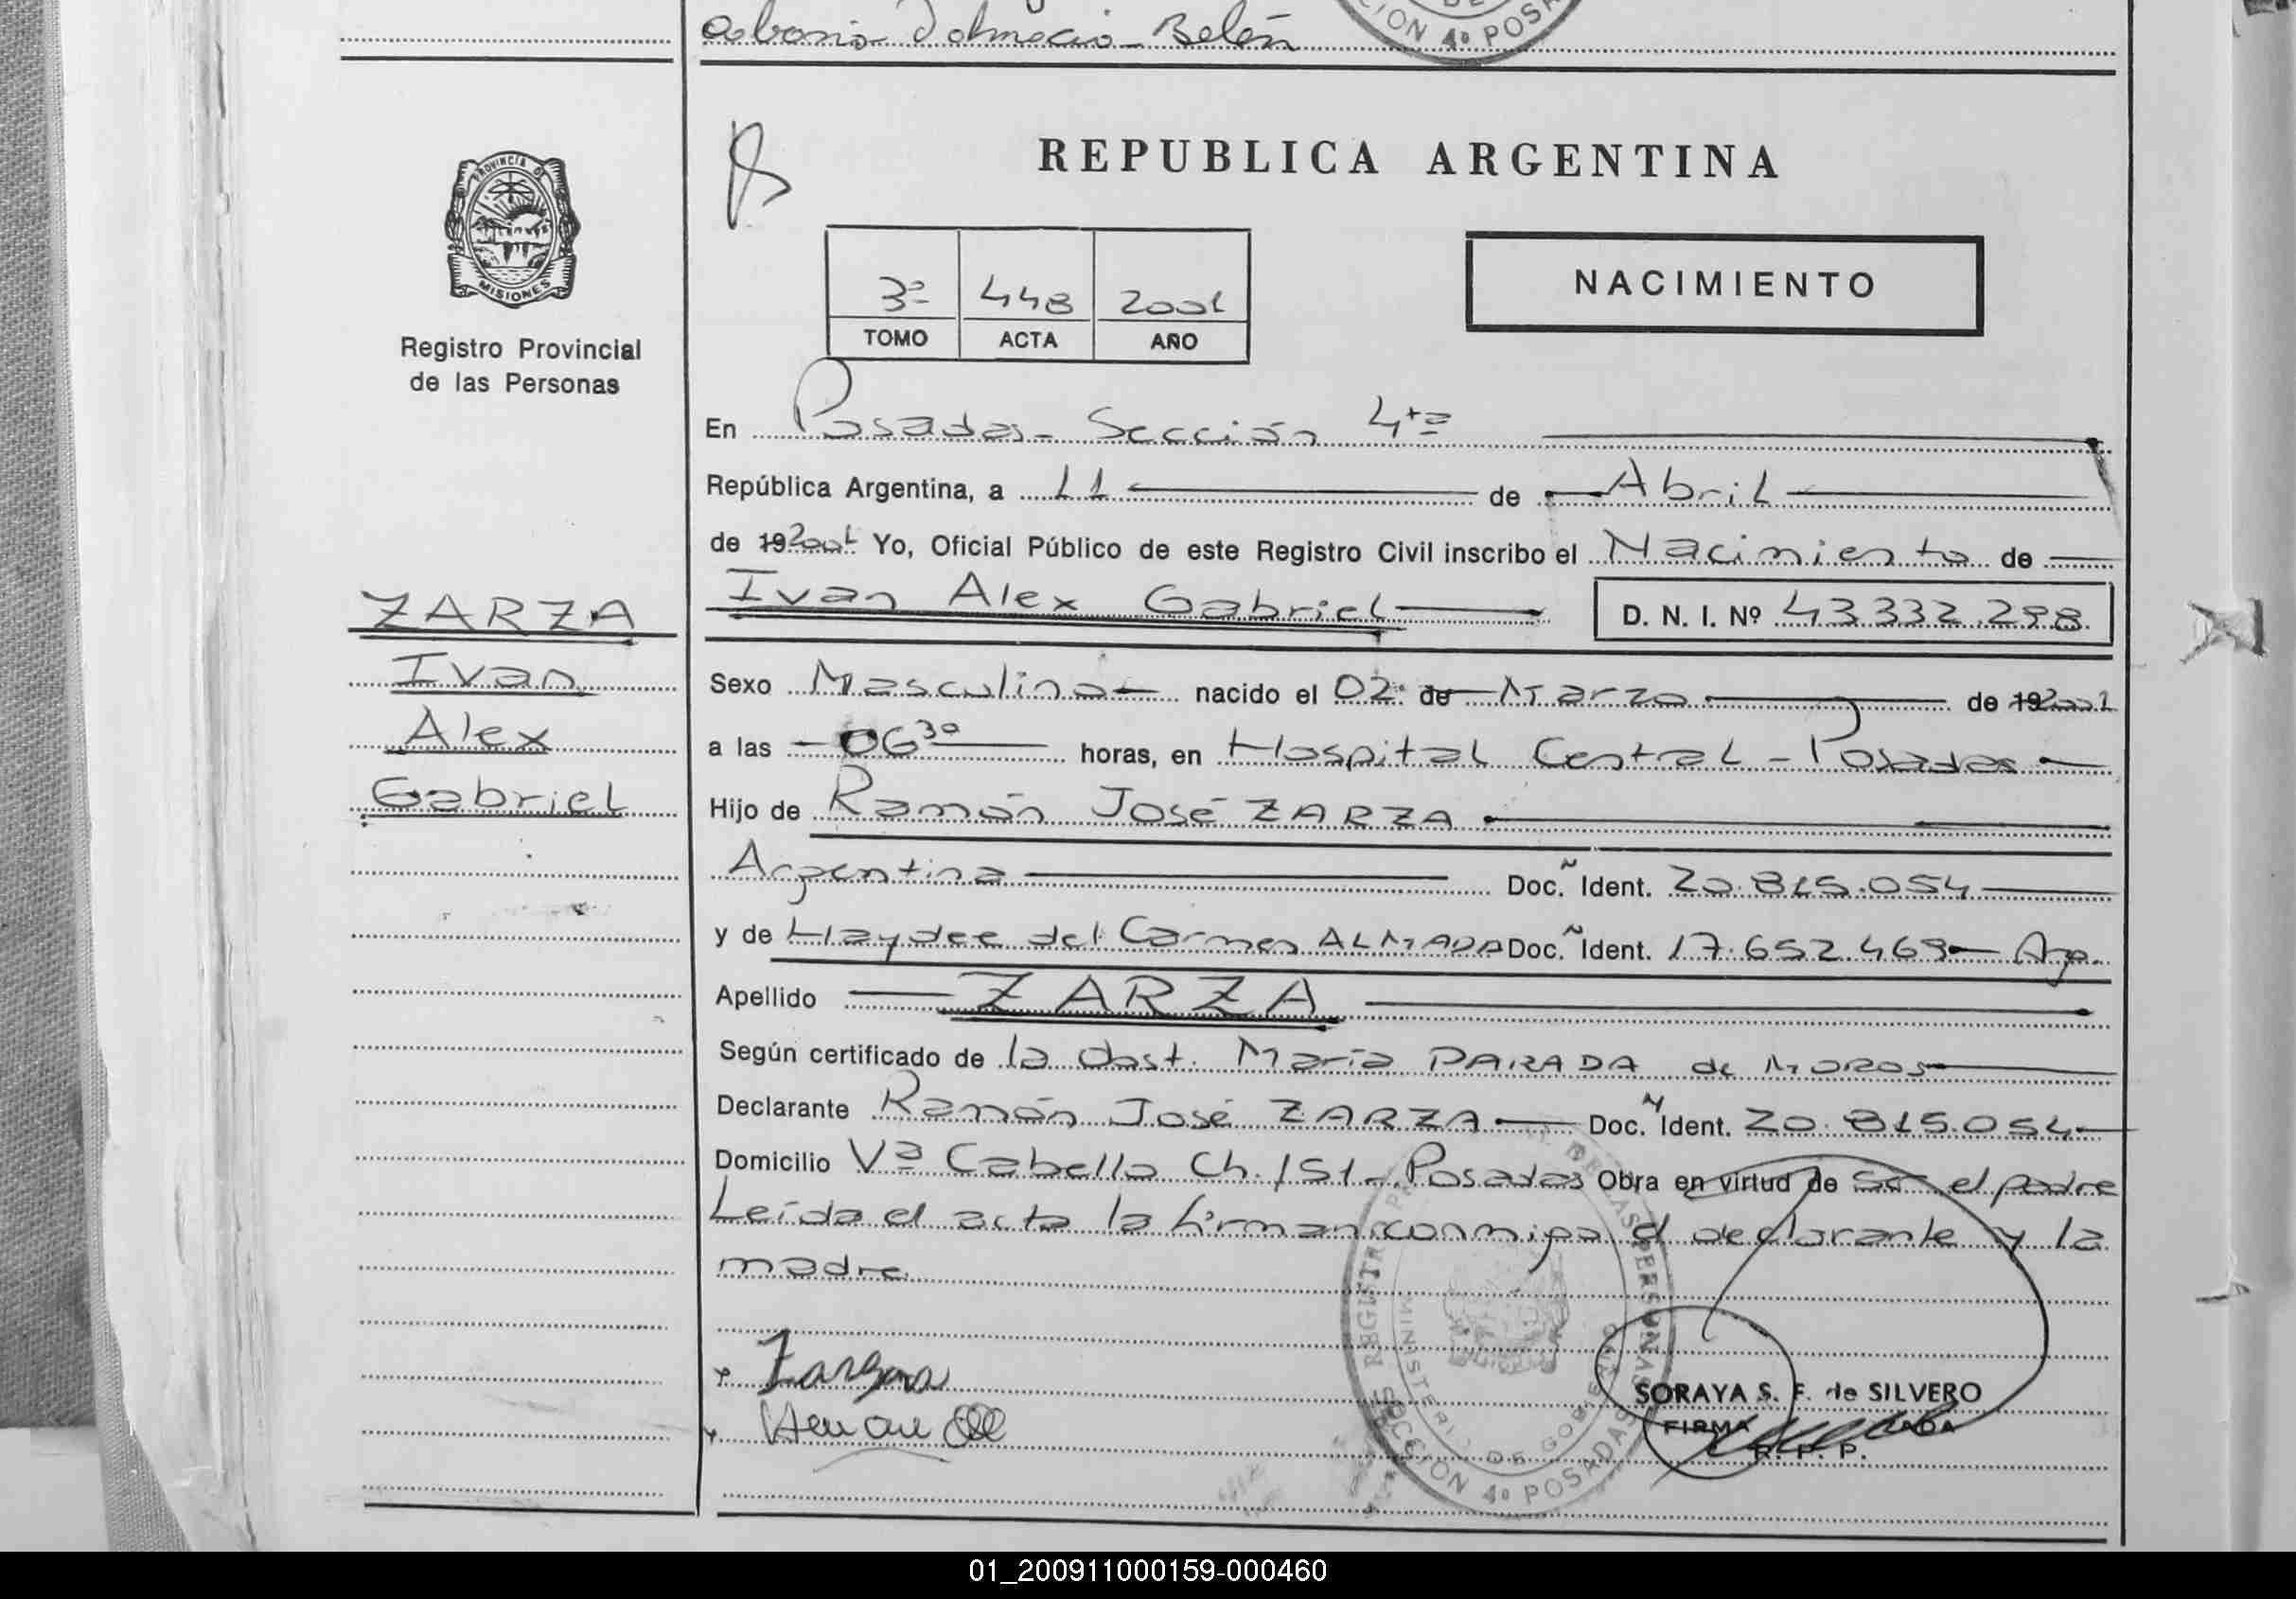 Belén
CION 4º POSA
REPUBLICA ARGENTINA
PROVINCIA DE
MISIONES
Registro Provincial
de las Personas
3º 448 2001
TOMO ACTA AÑO
NACIMIENTO
En Posadas - Sección 4ta
República Argentina, a 11 de Abril
de 19 2001 Yo, Oficial Público de este Registro Civil inscribo el Nacimiento de
Ivan Alex Gabriel D. N. I. Nº 43.332.298
ZARZA
Ivan
Alex
Gabriel
Sexo Masculino nacido el 02 de Marzo de 19 2001
a las 06 30 horas, en Hospital Central - Posadas
Hijo de Ramón José ZARZA
Argentina Doc. Ident. 20.815.054
y de Haydee del Carmen ALMADA Doc. Ident. 17.652.469 - Arg.
Apellido ZARZA
Según certificado de la Obst. María PARADA de MOROS
Declarante Ramón José ZARZA Doc. Ident. 20.815.054
Domicilio Vª Cabello Ch. 151 - Posadas Obra en virtud de ser el padre
Leída el acta la firman conmigo el declarante y la
madre
REGISTRO DE LAS PERSONAS
MINISTERIO DE GOBIERNO
SECCION 4º POSADAS
SORAYA S. F. de SILVERO
FIRMA
R. P. P.
01_200911000159-000460